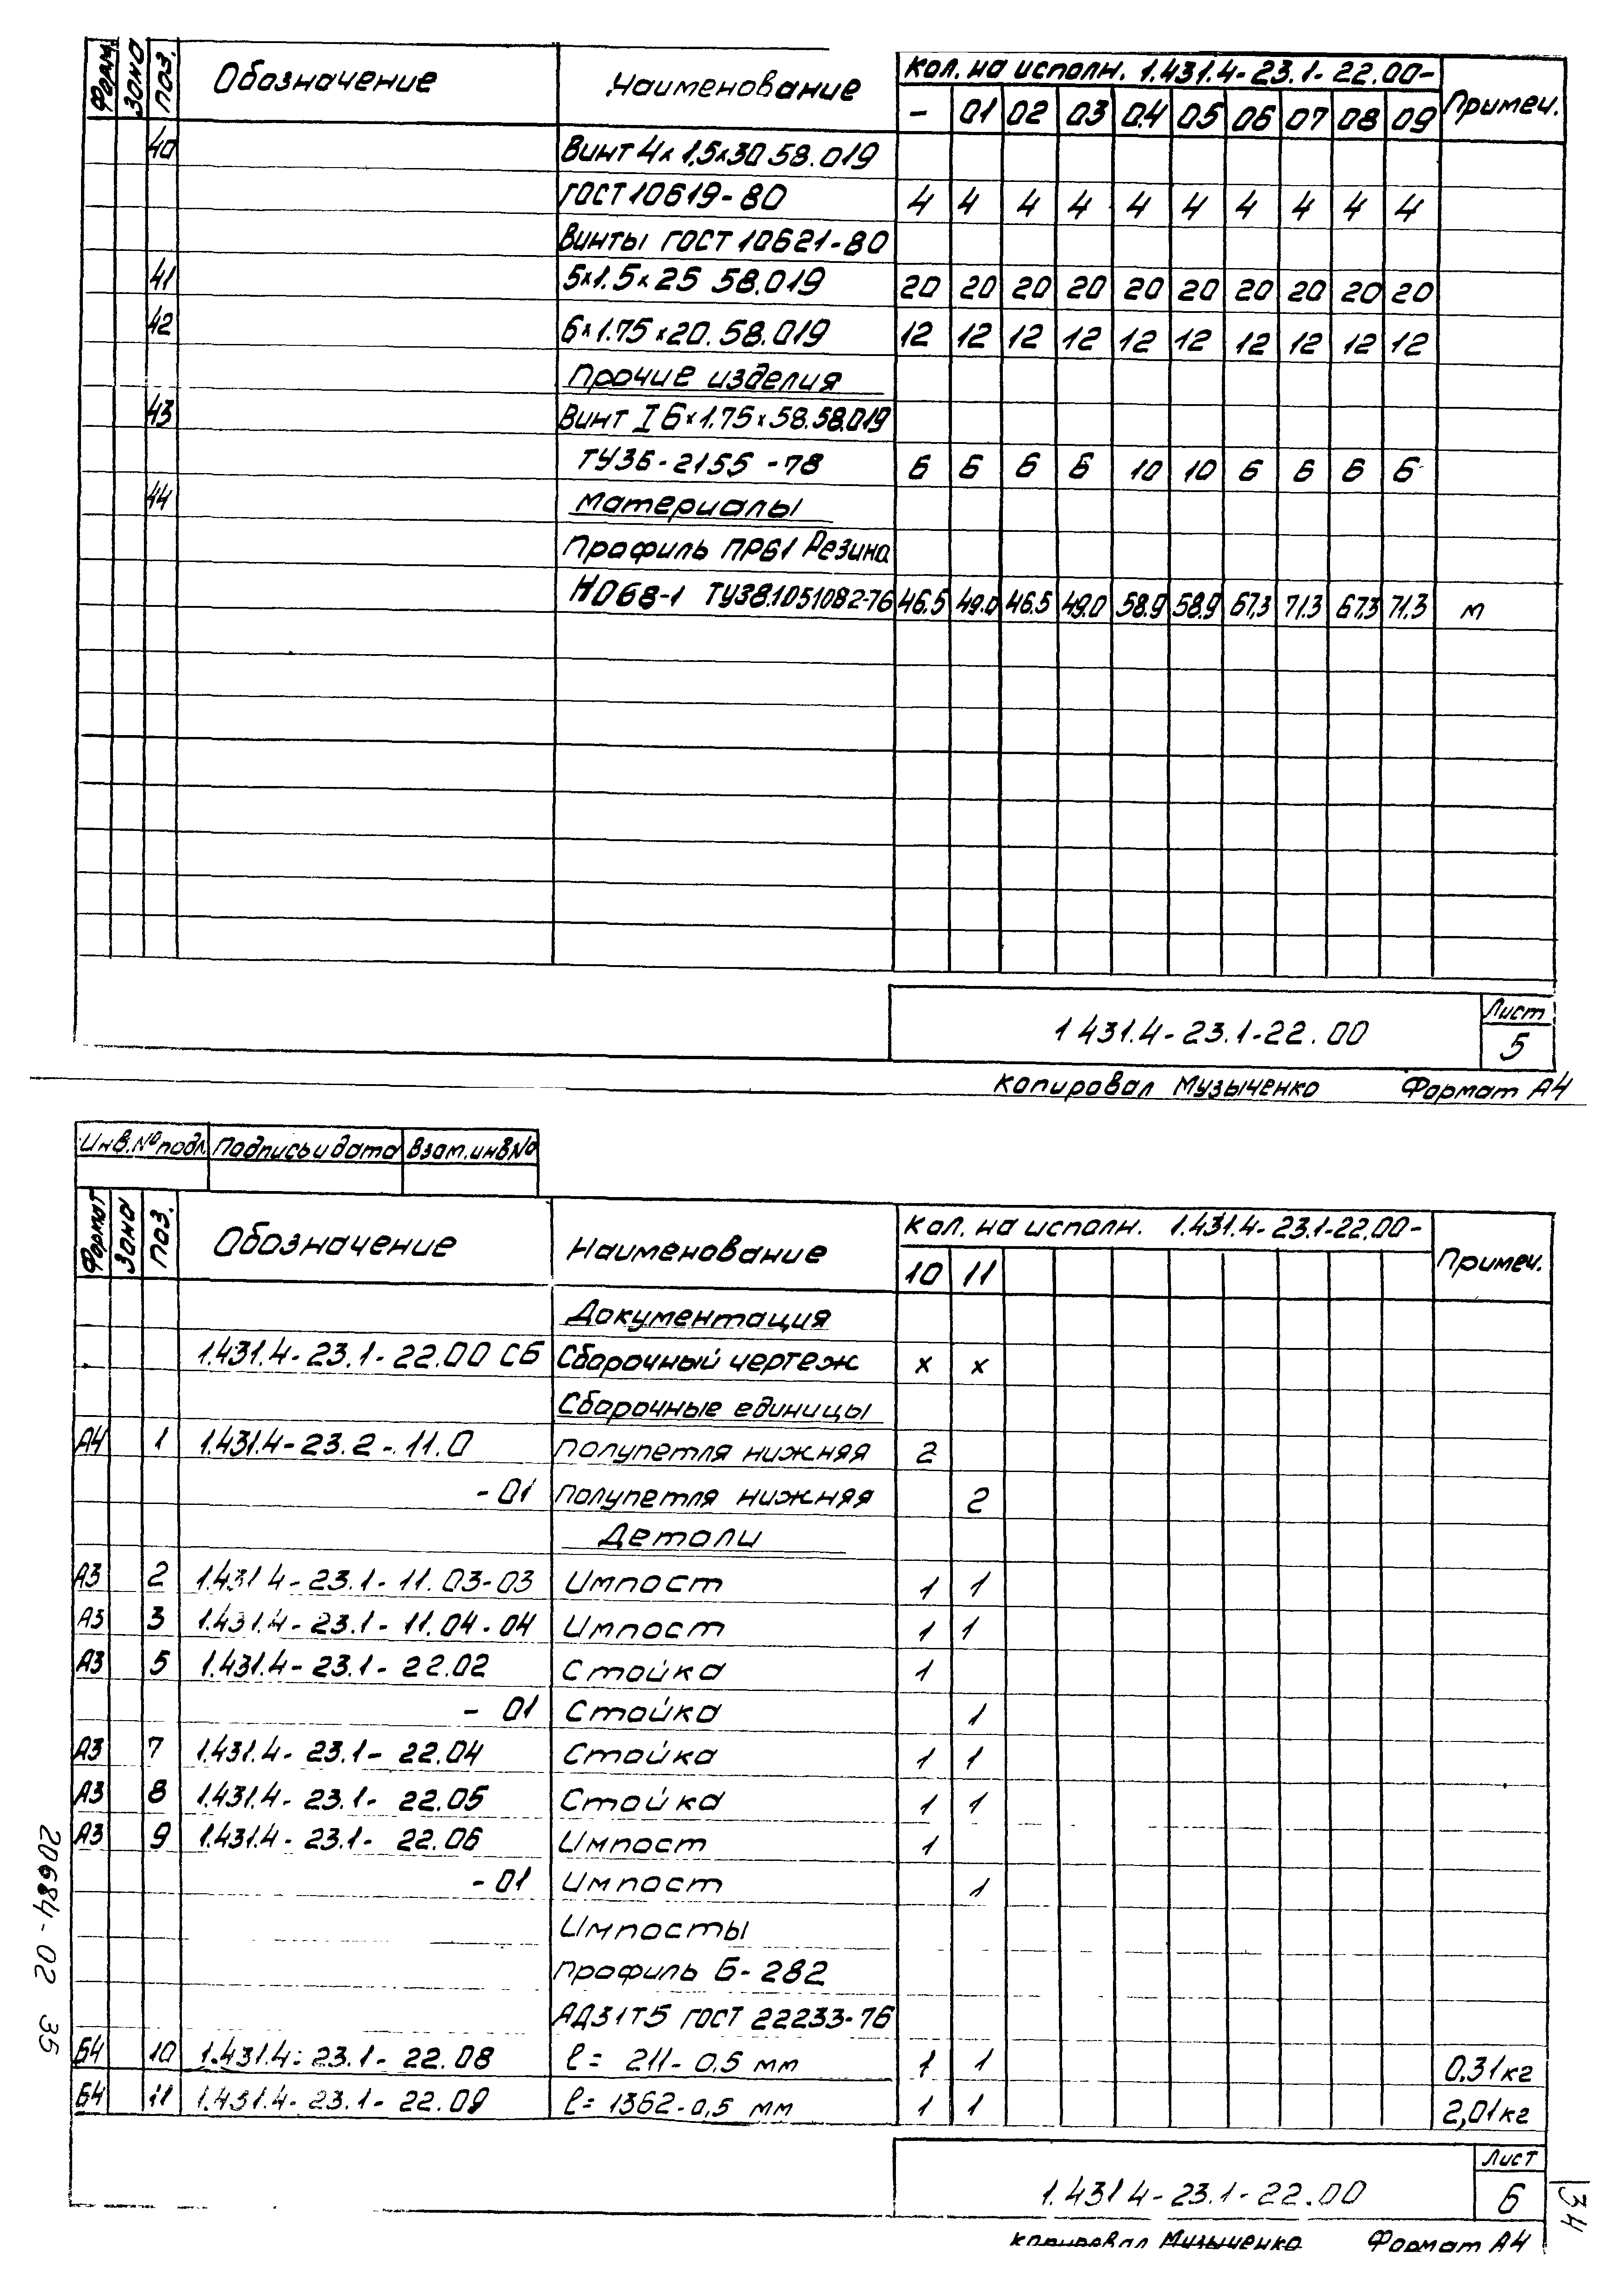 Форм. Зона Поз. Обозначение Наименование Кол. на исполн. 1.431.4-23.1-22.00- Примеч.
- 01 02 03 04 05 06 07 08 09
40 Винт 4х1,5х30 58.019
ГОСТ 10619-80 4 4 4 4 4 4 4 4 4 4
Винты ГОСТ 10621-80
41 5х1.5х25 58.019 20 20 20 20 20 20 20 20 20 20
42 6х1.75х20.58.019 12 12 12 12 12 12 12 12 12 12
Прочие изделия
43 Винт I 6х1.75х58.58.019
ТУ36-2155-78 6 6 6 6 10 10 6 6 6 6
44 Материалы
Профиль ПР61 Резина
НО68-1 ТУ38.1051082-76 46.5 49.0 46.5 49.0 58.9 58.9 67,3 71.3 67,3 71.3 м
1 431.4-23.1-22.00 Лист
5
Копировал Музыченко Формат А4
Инв.№ подл. Подпись и дата Взам.инв№
Формат Зона Поз. Обозначение Наименование Кол. на исполн. 1.431.4-23.1-22.00- Примеч.
10 11
Документация
1.431.4-23.1-22.00 СБ Сборочный чертеж х х
Сборочные единицы
А4 1 1.431.4-23.2-11.0 Полупетля нижняя 2
-01 Полупетля нижняя 2
Детали
А3 2 1.431 4-23.1-11.03-03 Импост 1 1
А3 3 1.431.4-23.1-11.04-04 Импост 1 1
А3 5 1.431.4-23.1-22.02 Стойка 1
-01 Стойка 1
А3 7 1.431.4-23.1-22.04 Стойка 1 1
А3 8 1.431.4-23.1-22.05 Стойка 1 1
А3 9 1.431.4-23.1-22.06 Импост 1
-01 Импост 1
Импосты
Профиль Б-282
АД31Т5 ГОСТ 22233-76
Б4 10 1.431.4-23.1-22.08 ℓ= 211-0.5 мм 1 1 0,31кг
Б4 11 1.431.4-23.1-22.09 ℓ=1362-0,5 мм 1 1 2,01кг
1.431 4-23.1-22.00 Лист
6
Копировал Музыченко Формат А4
20684-02 35
34